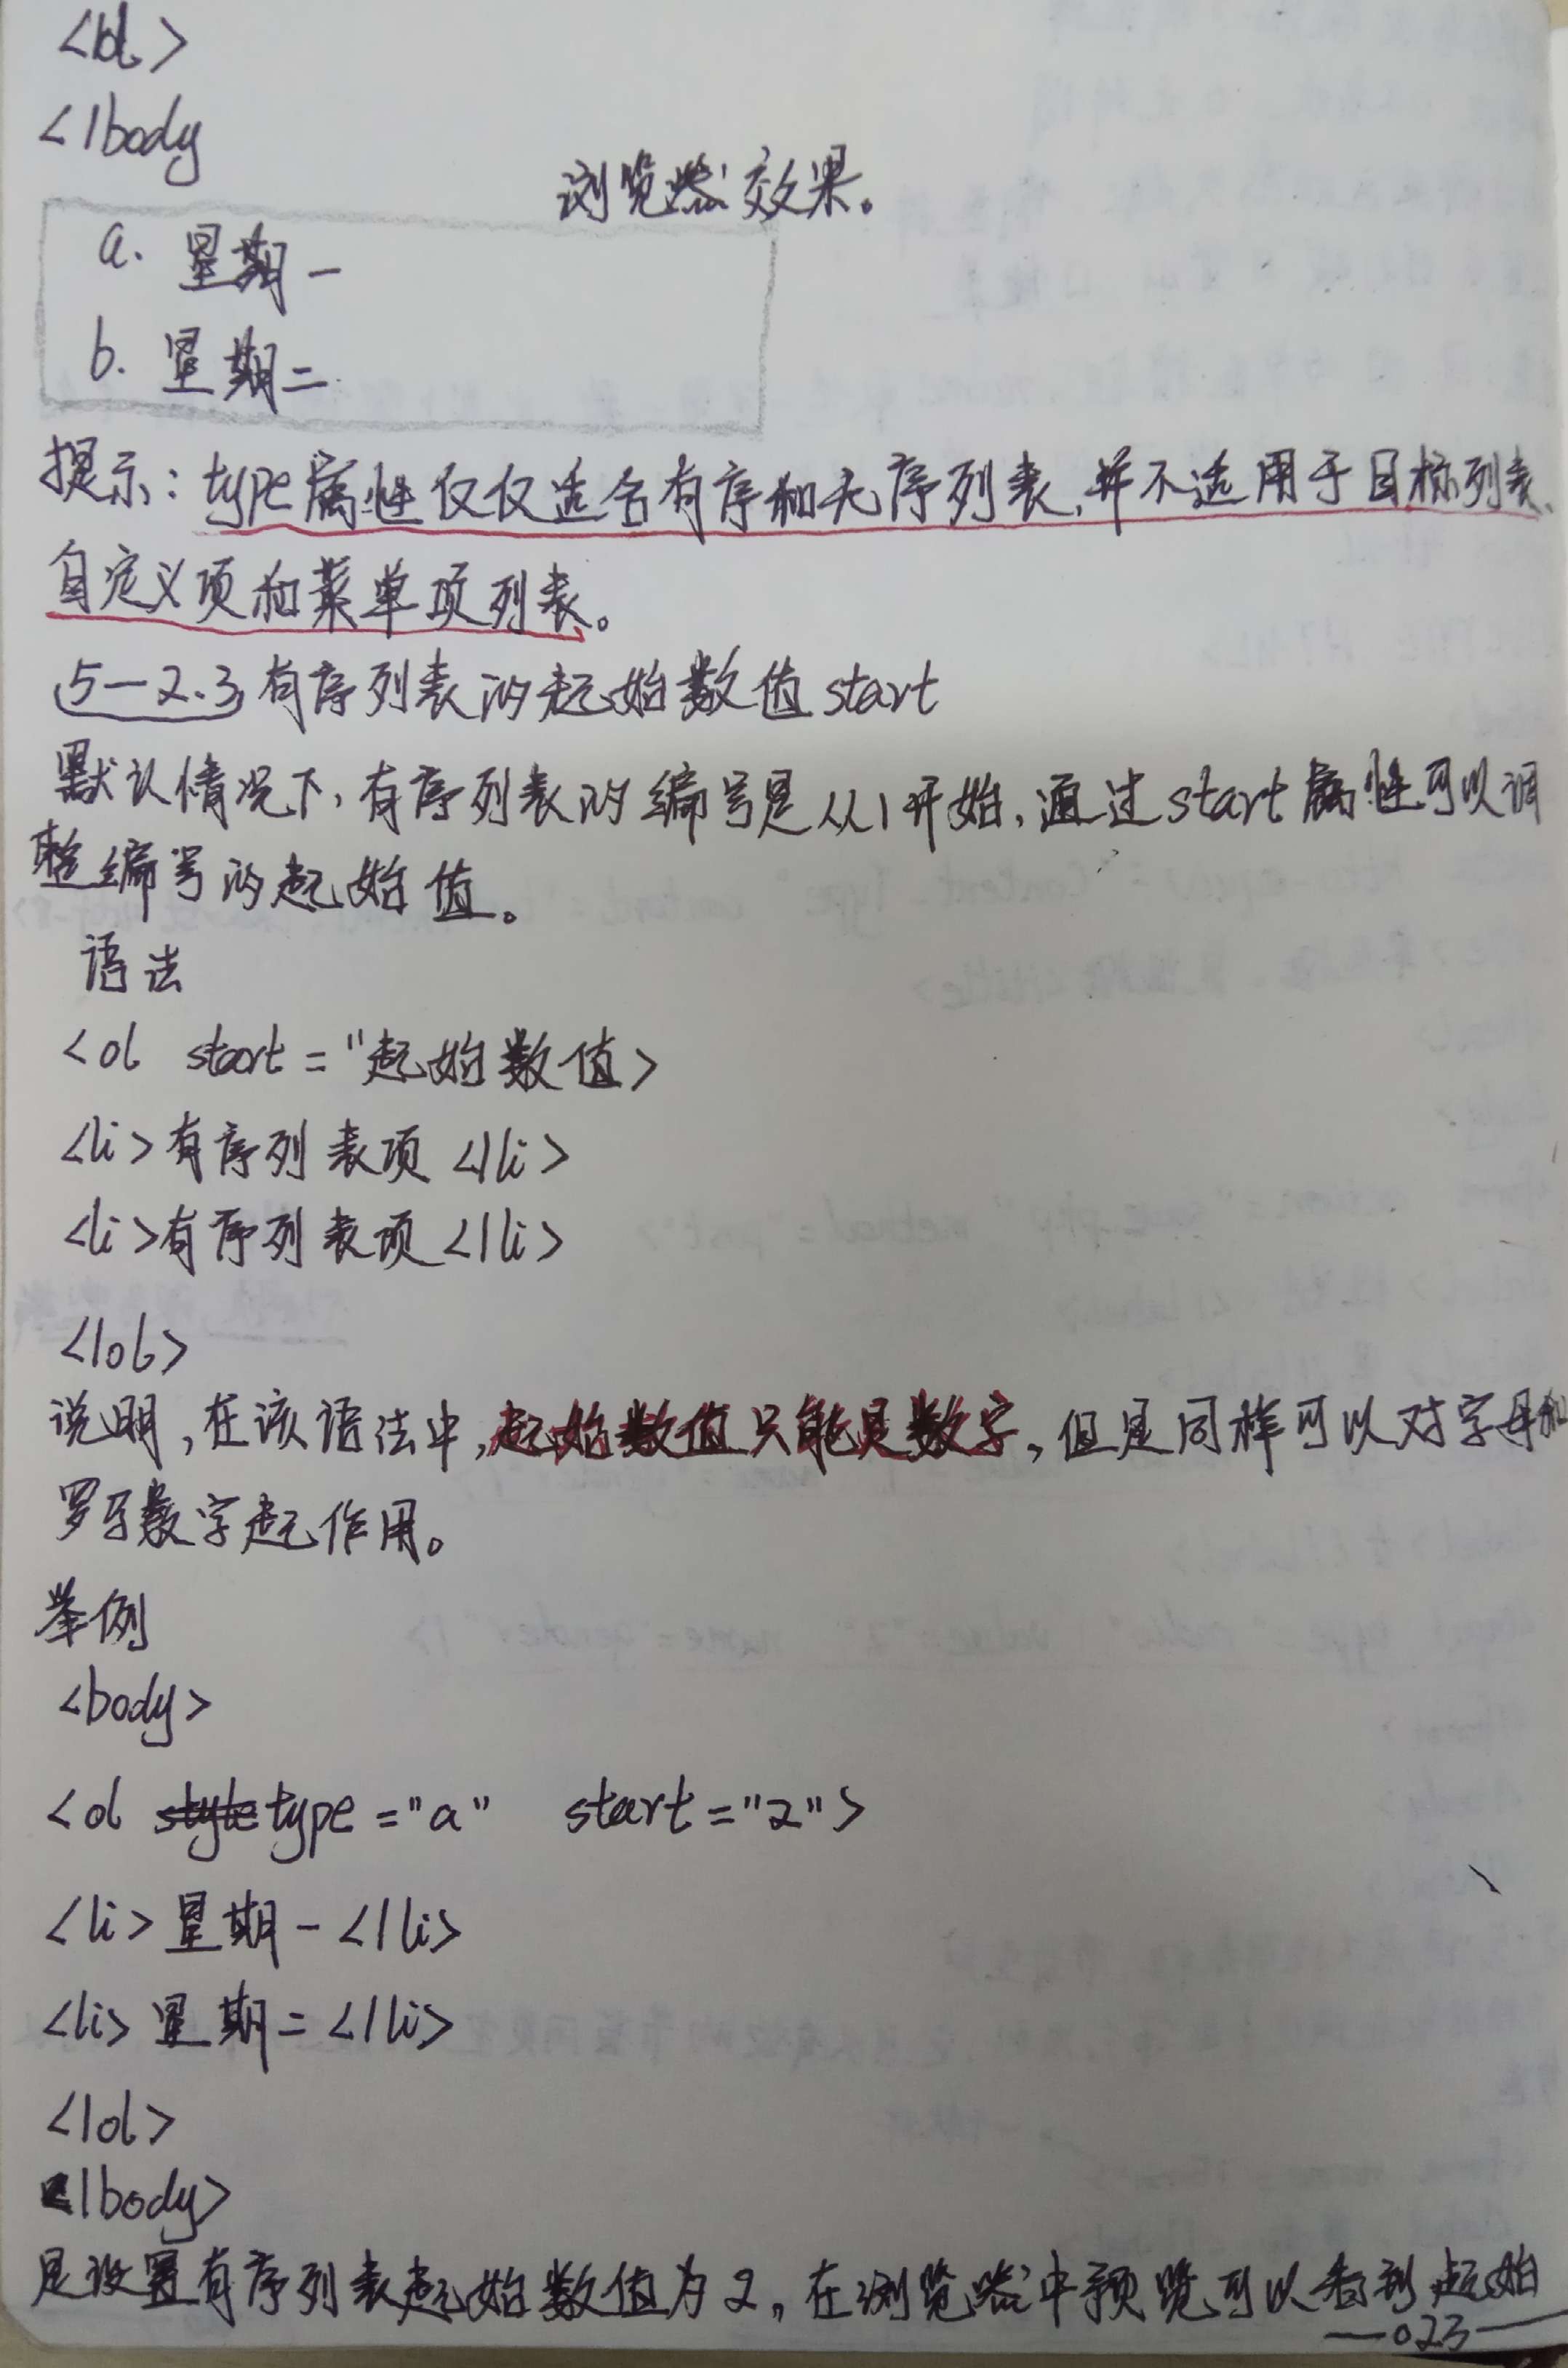 <ol>
</body
浏览器效果。
a. 星期一
b. 星期二
提示：type属性仅仅适合有序和无序列表，并不适用于目标列表、
自定义项和菜单项列表。
5—2.3 有序列表的起始数值start
默认情况下，有序列表的编号是从1开始，通过start属性可以调
整编号的起始值。
语法
<ol start="起始数值>
<li>有序列表项</li>
<li>有序列表项</li>
</ol>
说明，在该语法中，起始数值只能是数字，但是同样可以对字母和
罗马数字起作用。
举例
<body>
<ol type="a" start="2">
<li>星期一</li>
<li>星期二</li>
</ol>
</body>
是设置有序列表起始数值为2，在浏览器中预览可以看到起始
—023—